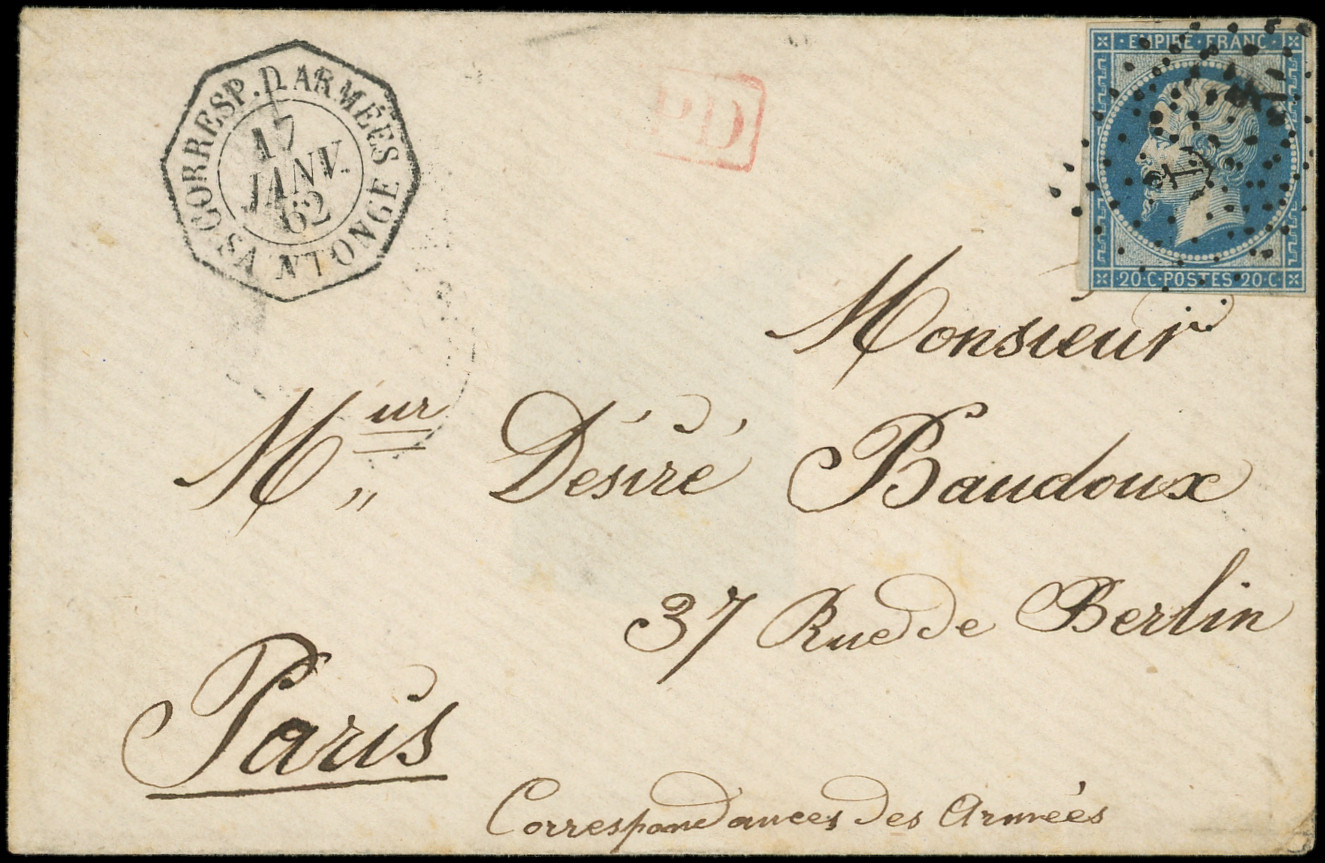 CORRESP. D. ARMÉES
VS. N. LONGE
17
JANV.
62
PD
EMPIRE · FRANC ·
20·C·POSTES·20·C·
Monsieur
M^ur „ Désiré Baudoux
37 Rue de Berlin
Paris
Correspondances des Armées